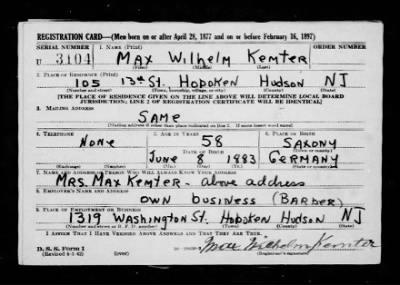 REGISTRATION CARD—(Men born on or after April 28, 1877 and on or before February 16, 1897)
SERIAL NUMBER 1. NAME (Print) ORDER NUMBER
U 3104 MAX WILHELM KEMTER
(First) (Middle) (Last)
2. PLACE OF RESIDENCE (Print)
105 13th St. HOBOKEN HUDSON NJ
(Number and street) (Town, township, village, or city) (County) (State)
[THE PLACE OF RESIDENCE GIVEN ON THE LINE ABOVE WILL DETERMINE LOCAL BOARD
JURISDICTION; LINE 2 OF REGISTRATION CERTIFICATE WILL BE IDENTICAL]
3. MAILING ADDRESS
SAME
[Mailing address if other than place indicated on line 2. If same insert word same]
4. TELEPHONE 5. AGE IN YEARS 6. PLACE OF BIRTH
NONE 58 SAXONY
DATE OF BIRTH (Town or county)
JUNE 8 1883 GERMANY
(Exchange) (Number) (Mo.) (Day) (Yr.) (State or country)
7. NAME AND ADDRESS OF PERSON WHO WILL ALWAYS KNOW YOUR ADDRESS
MRS. MAX KEMTER - above address
8. EMPLOYER'S NAME AND ADDRESS
OWN BUSINESS (BARBER)
9. PLACE OF EMPLOYMENT OR BUSINESS
1319 WASHINGTON ST. HOBOKEN HUDSON NJ
(Number and street or R. F. D. number) (Town) (County) (State)
I AFFIRM THAT I HAVE VERIFIED ABOVE ANSWERS AND THAT THEY ARE TRUE.
D. S. S. Form 1
(Revised 4-1-42) (over) Max Wilhelm Kemter
(Registrant's signature)